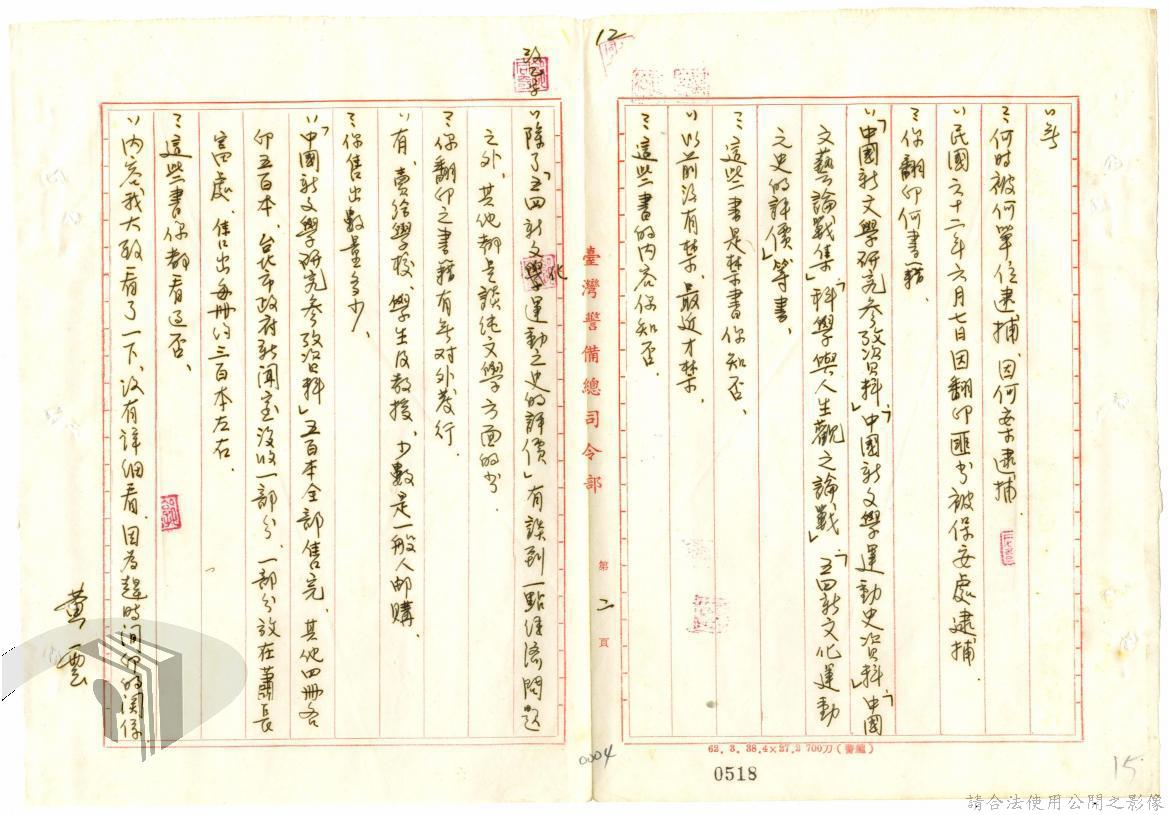 12
〃無
〃何時被何單位逮捕、因何案逮捕.
〃民國六十二年六月七日因翻印匪书被保安處逮捕.
〃你翻印何書籍.
〃「中國新文學研究參攷資料」「中國新文學運動史資料」「中國
文藝論戰集」「科學與人生觀之論戰」「五四新文化運動
之史的評價」等書.
〃這些書是禁書你知否.
〃以前沒有禁、最近才禁.
〃這些書的內容你知否.
臺灣警備總司令部
第 二 頁
62. 3. 38.4×27.2 700刀(審編)
0518
0004
15
〃除了「五四新文學運動之史的評價」有談到一點經濟問題
化
之外、其他都是談純文學方面的书.
〃你翻印之書籍有無對外發行.
〃有、賣給學校、學生及教授、少數是一般人邮購.
〃你售出數量多少.
〃「中國新文學研究參攷資料」五百本全部售完、其他四冊各
印五百本、台北市政府新聞室沒收一部分、一部分放在蕭長
富處、售出每冊約三百本左右.
〃這些書你都看过否.
〃內容我大致看了一下、沒有詳細看、因為趕時间印的関係.
黃雲
請合法使用公開之影像